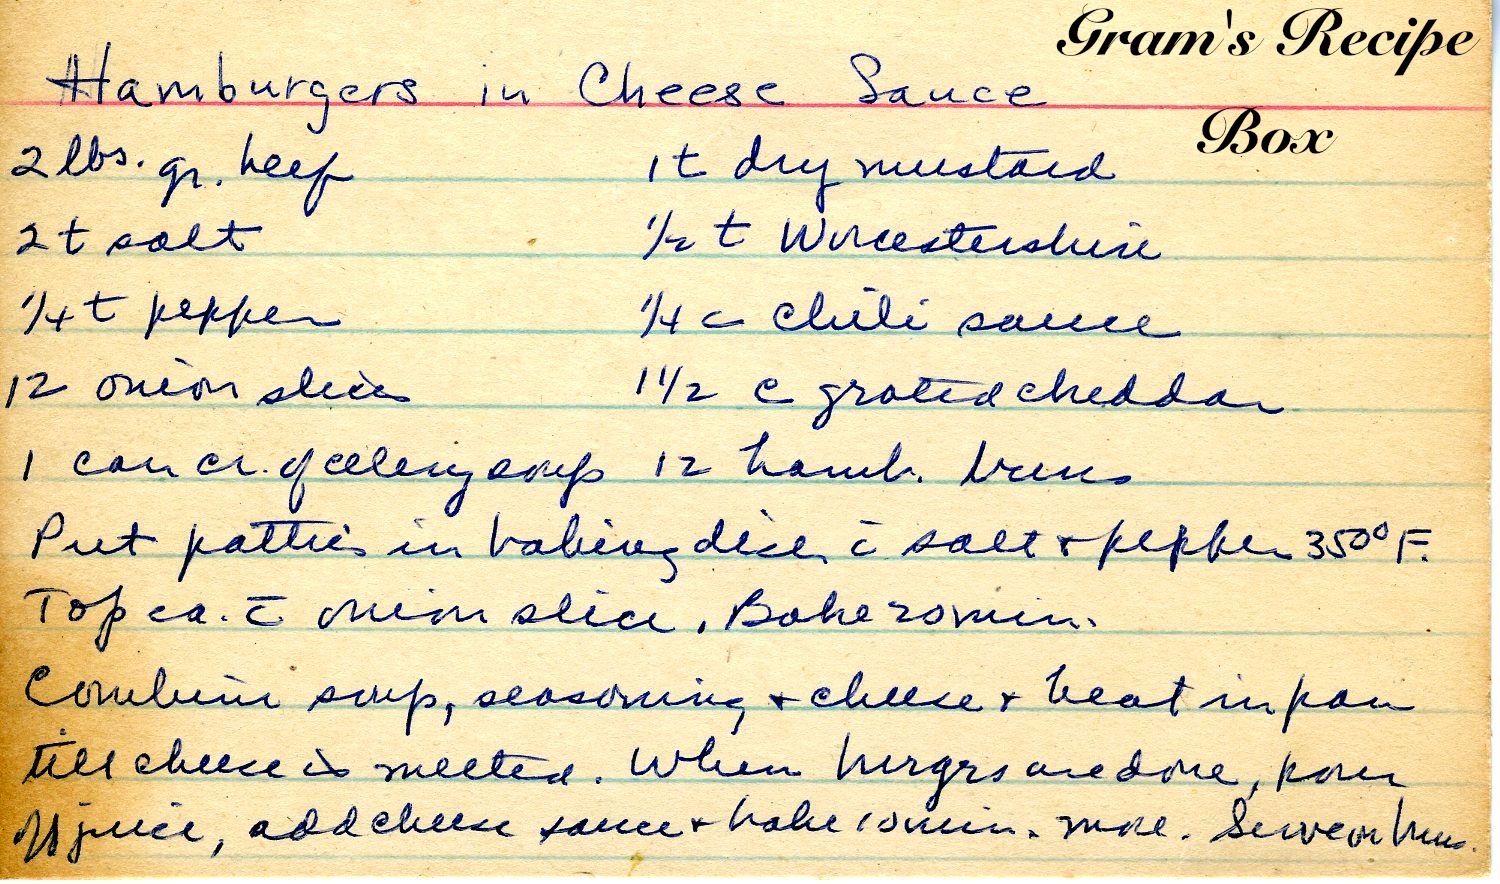 Gram's Recipe
Box
Hamburgers in Cheese Sauce
2 lbs. gr. beef
1 t dry mustard
2 t salt
1/2 t Worcestershire
1/4 t pepper
1/4 c chili sauce
12 onion slices
1 1/2 c grated cheddar
1 can cr. of celery soup
12 hamb. buns
Put patties in baking dish c̄ salt + pepper 350° F.
Top ea. c̄ onion slice. Bake 20 min.
Combine soup, seasoning + cheese + heat in pan
till cheese is melted. When burgrs are done, pour
off juice, add cheese sauce + bake 10 min. more. Serve on buns.